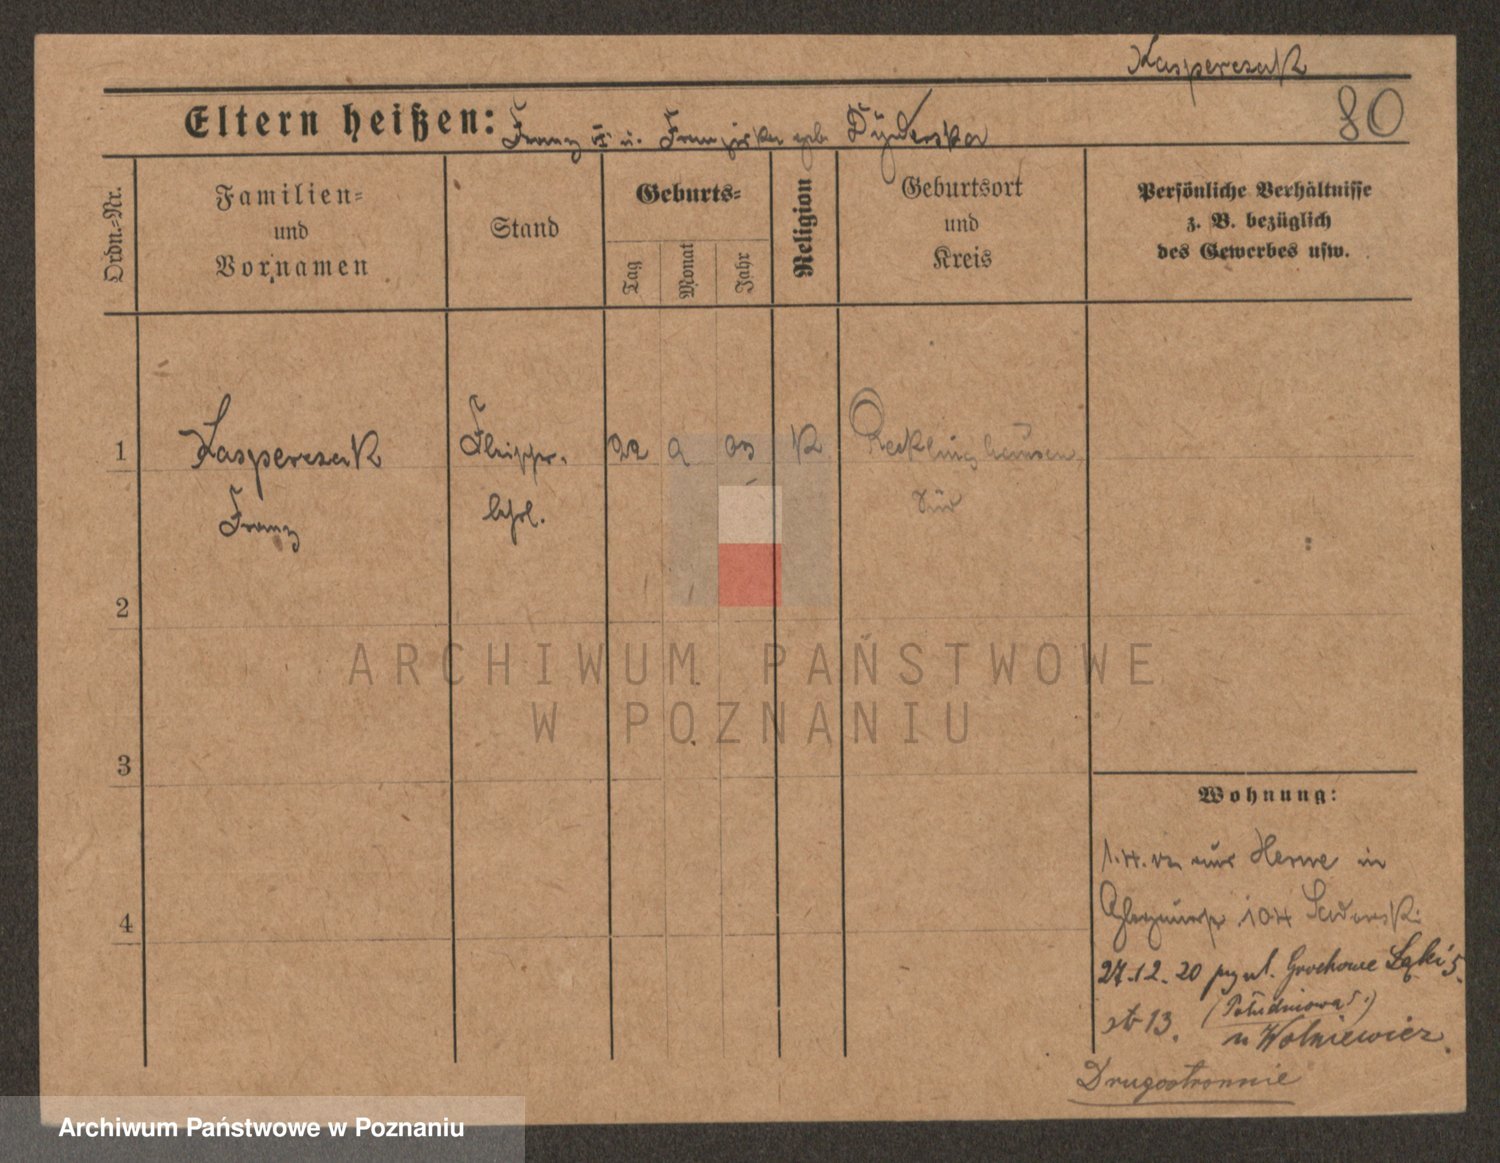 Kasperczak
80
Eltern heißen: Franz u. Franziska geb.
Ordn.=Nr.
Familien=
und
Vornamen
Stand
Geburts=
Tag
Monat
Jahr
Religion
Geburtsort
und
Kreis
Persönliche Verhältnisse
z. B. bezüglich
des Gewerbes usw.
1
Kasperczak
Franz
Fleischer.
lehrl.
22
9
03
K
Recklinghausen
Süd
2
3
4
Wohnung:
aus Herne in
104
27.12.20 przy ul. Grochowe Łąki 5.
13.
(Południowa 5.)
u Wolniewicz.
Drugostronnie
ARCHIWUM PAŃSTWOWE
W POZNANIU
Archiwum Państwowe w Poznaniu